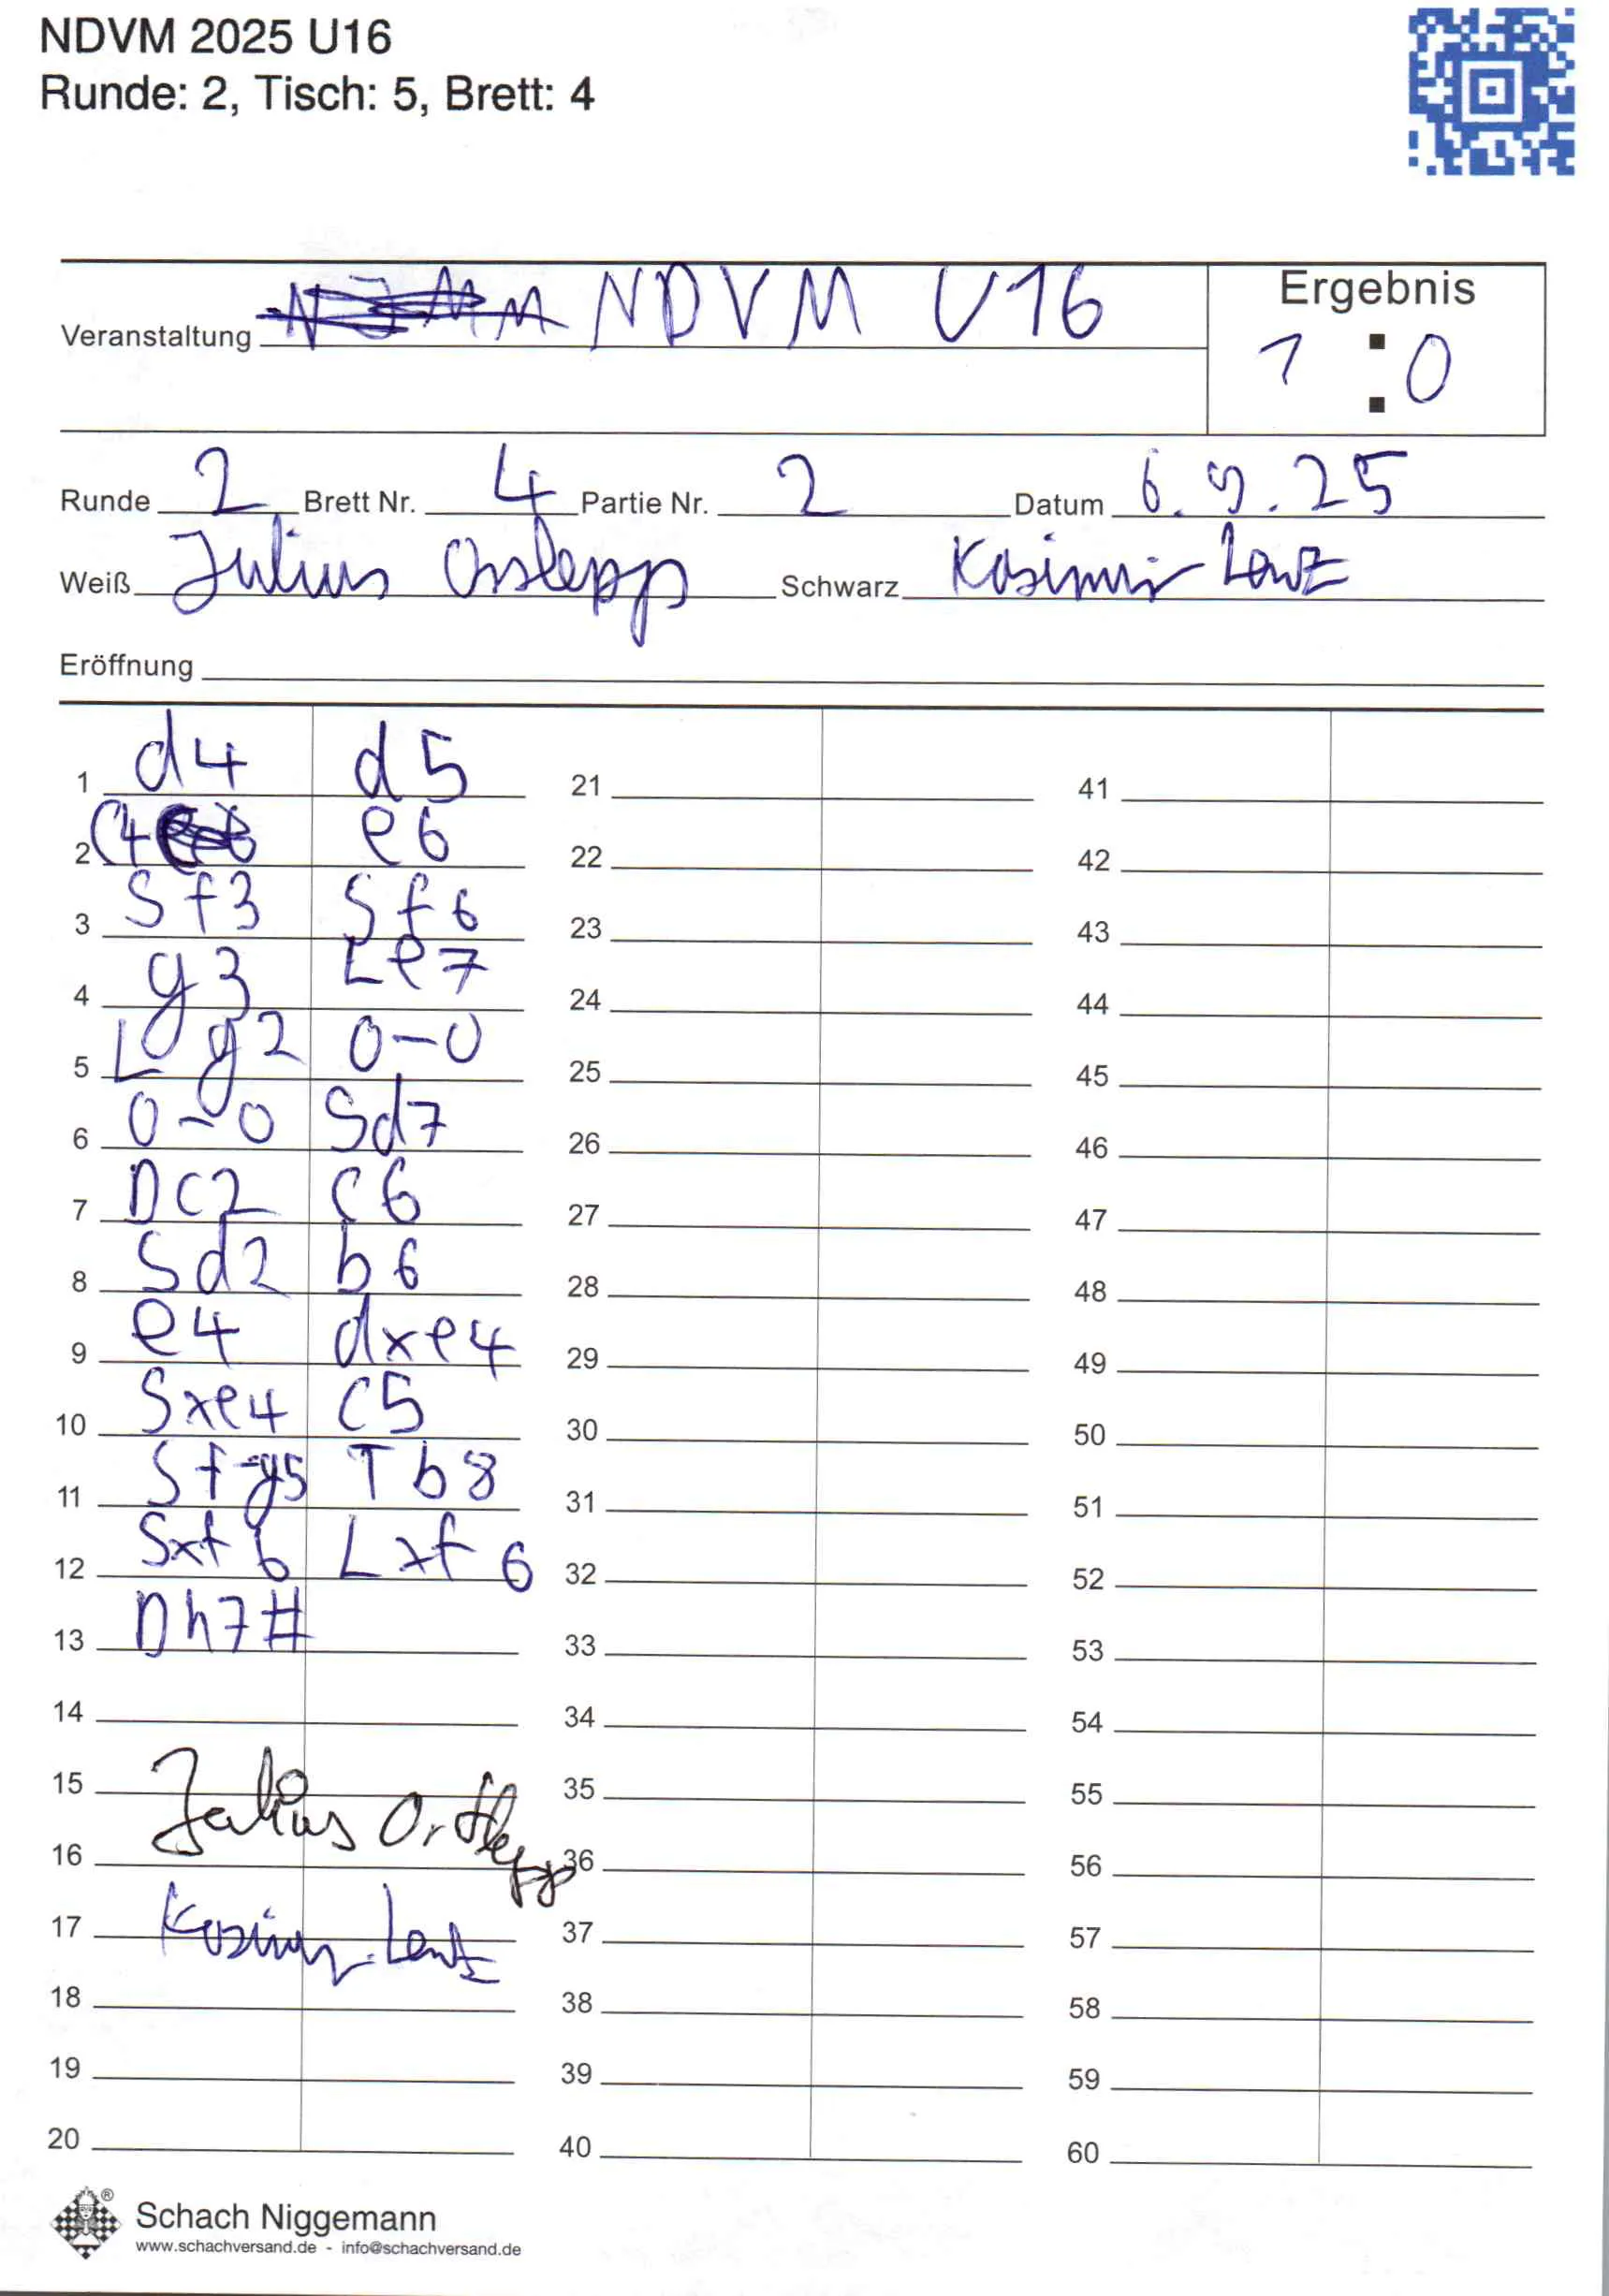 NDVM 2025 U16
Runde: 2, Tisch: 5, Brett: 4
Veranstaltung NDVM U16
Ergebnis
1 : 0
Runde 2 Brett Nr. 4 Partie Nr. 2 Datum 6.9.25
Weiß Julius Schwarz Kasimir Lentz
Eröffnung
1 d4 d5 21 41
2 c4 e6 22 42
3 Sf3 Sf6 23 43
4 g3 Le7 24 44
5 Lg2 0-0 25 45
6 0-0 Sd7 26 46
7 Dc2 c6 27 47
8 Sd2 b6 28 48
9 e4 dxe4 29 49
10 Sxe4 c5 30 50
11 Sf-g5 Tb8 31 51
12 Sxf6 Lxf6 32 52
13 Dh7# 33 53
14 34 54
15 35 55
Julius Ortlepp
16 36 56
17 Kasimir Lentz 37 57
18 38 58
19 39 59
20 40 60
Schach Niggemann
www.schachversand.de - info@schachversand.de